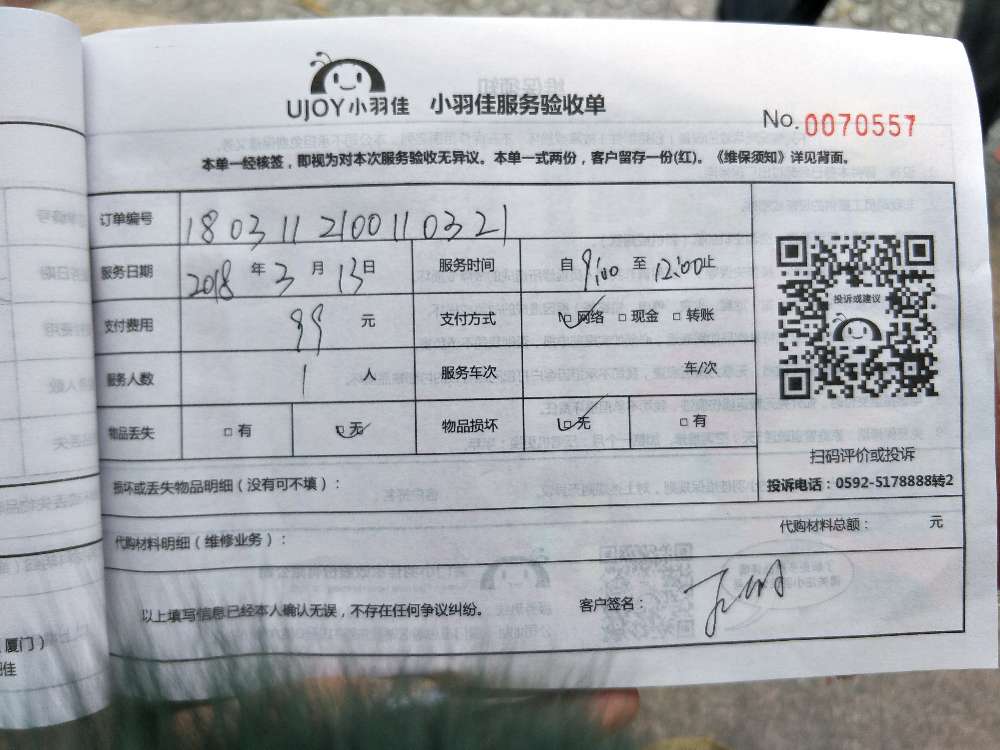 UJOY小羽佳 小羽佳服务验收单
No. 0070557
本单一经核签，即视为对本次服务验收无异议。本单一式两份，客户留存一份(红)。《维保须知》详见背面。
订单编号 18031121001100321
服务日期 2018 年 3 月 13 日 服务时间 自 9:00 至 12:00 止
支付费用 99 元 支付方式 ☑网络 □现金 □转账
服务人数 1 人 服务车次 车/次
物品丢失 □有 ☑无 物品损坏 ☑无 □有
投诉或建议
扫码评价或投诉
投诉电话：0592-5178888转2
损坏或丢失物品明细（没有可不填）：
代购材料明细（维修业务）： 代购材料总额： 元
以上填写信息已经本人确认无误，不存在任何争议纠纷。 客户签名：
厦门）
佳